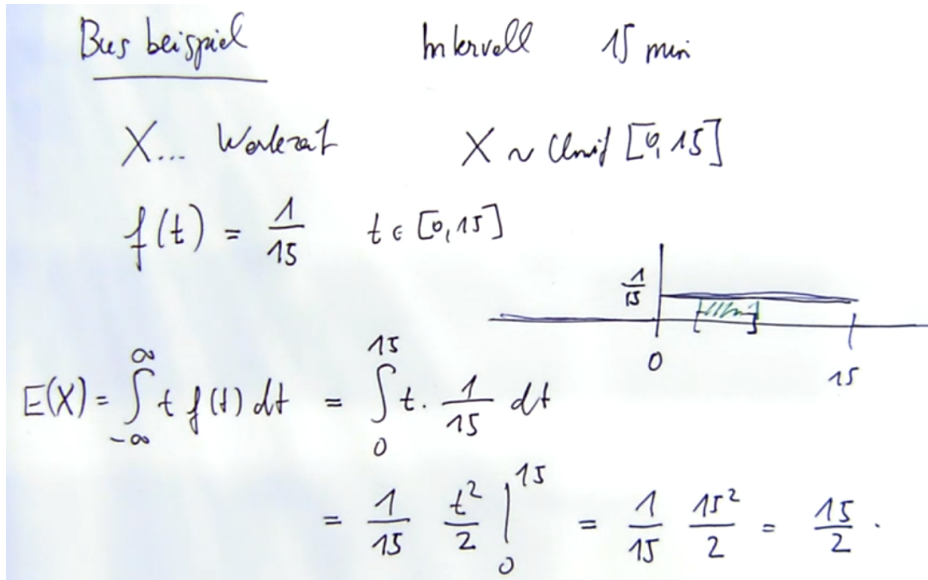 Busbeispiel Intervall 15 min
X... Wartezeit X ~ Unif [0,15]
f(t) = 1/15 t ∈ [0,15]
1/15
0 15
E(X) = ∫_{-∞}^{∞} t f(t) dt = ∫_0^{15} t · 1/15 dt
= 1/15 t²/2 |_0^{15} = 1/15 15²/2 = 15/2 .